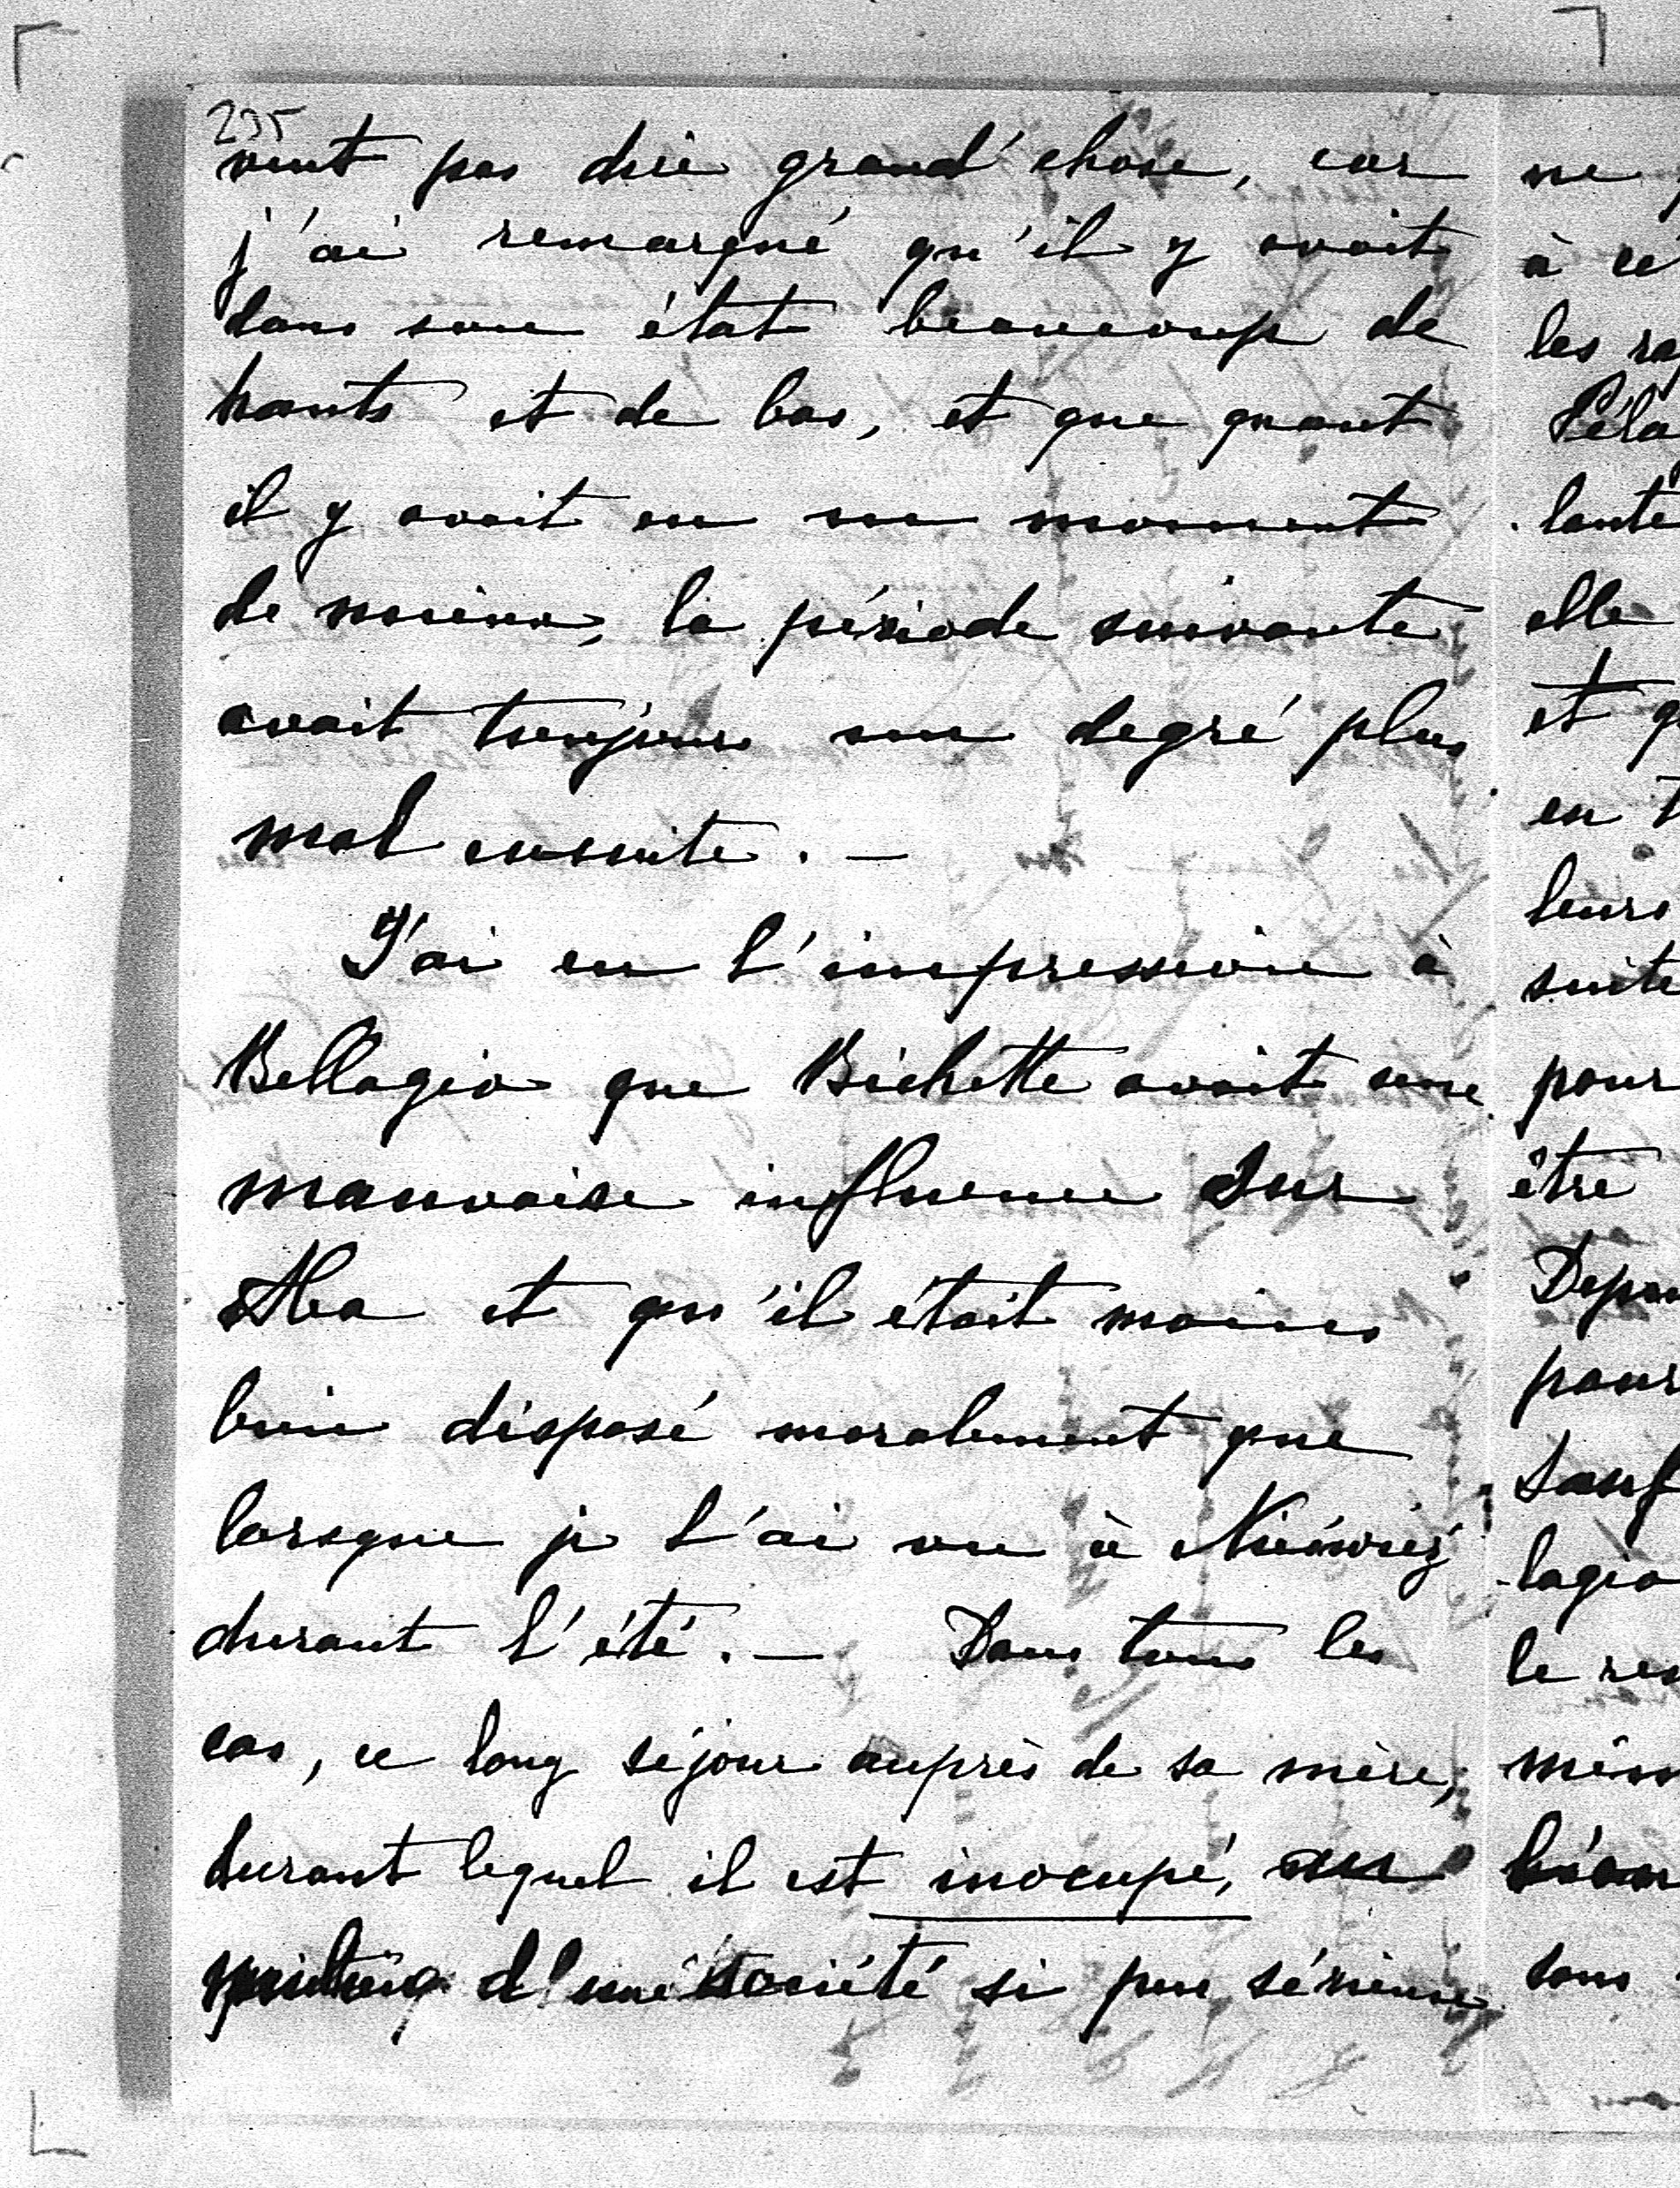 235
veut pas dire grand'chose, car
j'ai remarqué qu'il y avait
dans son état beaucoup de
hauts et de bas, et que quant
il y avait eu un moment
de mieux, la période suivante
avait toujours un degré plus
mal ensuite. —
J'ai eu l'impression à
Bellagio que Bichette avait une
mauvaise influence sur
Aba et qu'il était moins
bien disposé moralement que
lorsque je l'ai vu à
durant l'été. — Dans tous les
cas, ce long séjour auprès de sa mère,
durant lequel il est inocupé, au
d'une société si peu sérieuse
ne
à ce
les ra
Péla
lanté
elle
et q
en
leurs
suite
pour
être
Depu
pour
Sauf
lagio
le res
mêm
sans